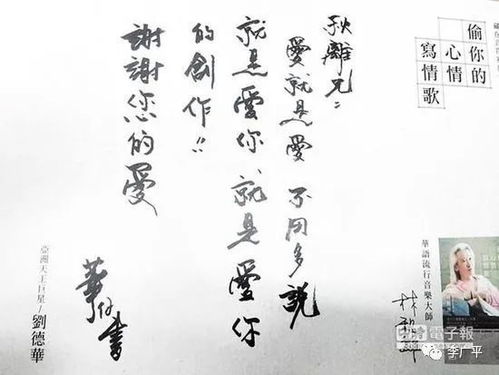 偷你的
心情
寫情歌
秋離兄：
愛就是愛 不用多說
就是愛你 就是愛你
的創作!!
謝謝您的愛
華仔書
亞洲天王巨星
劉德華
華語流行音樂大師
林秋離
電子報
李广平